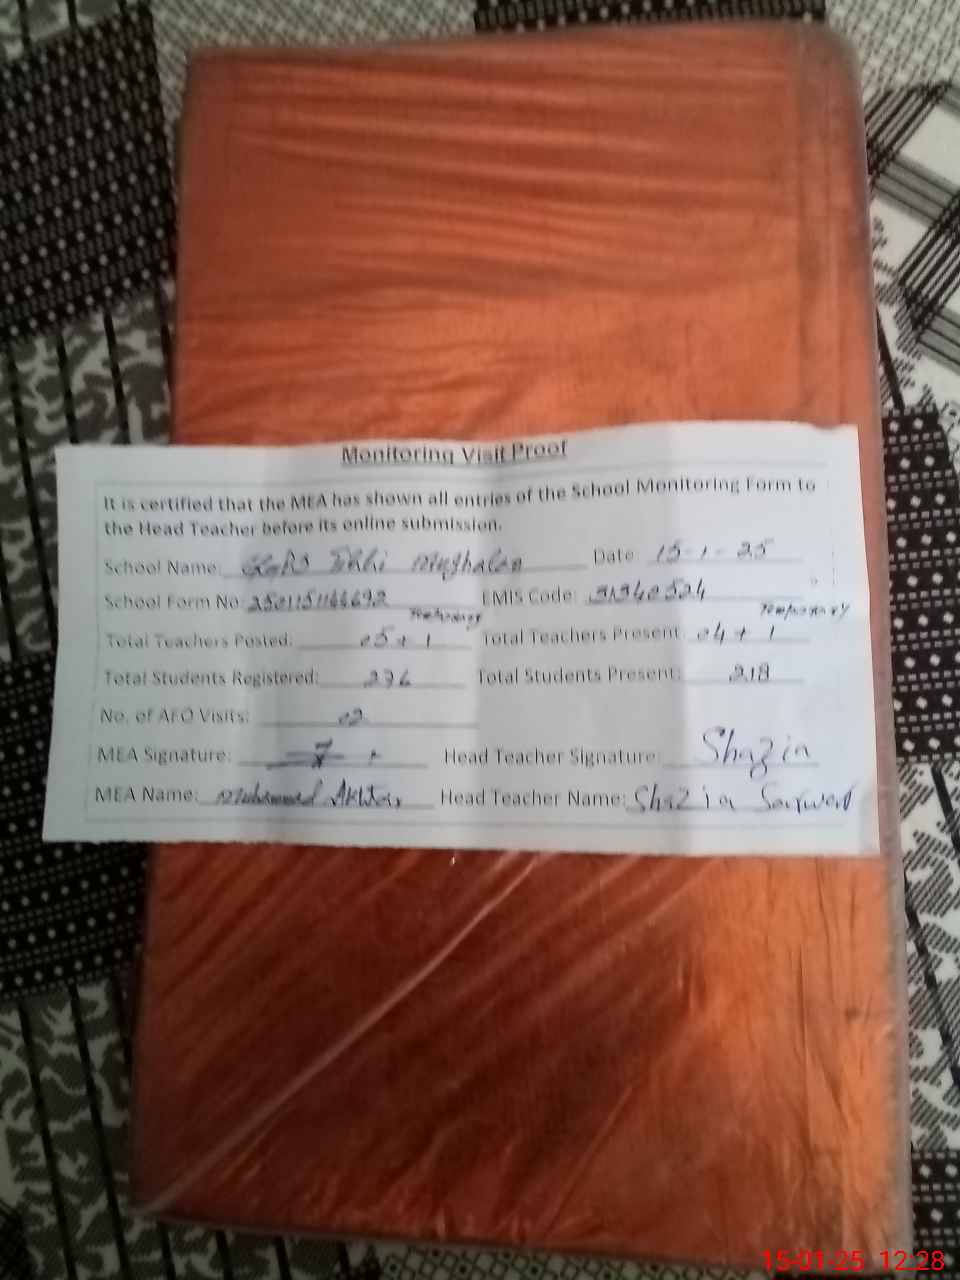 Monitoring Visit Proof
It is certified that the MEA has shown all entries of the School Monitoring Form to
the Head Teacher before its online submission.
School Name: Mughalan Date: 15-1-25
School Form No: EMIS Code: 31340524
Temporary Temporary
Total Teachers Posted: 05+1 Total Teachers Present: 04+1
Total Students Registered: 276 Total Students Present: 218
No. of AEO Visits: 02
MEA Signature: Head Teacher Signature: Shazia
MEA Name: Muhammad Akhtar Head Teacher Name: Shazia Sarwar
15-01-25 12:28